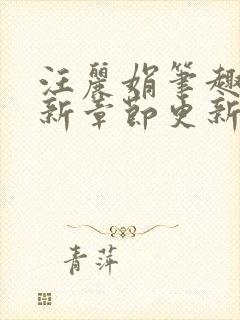 汪麗娟筆趣
新章節更新
青萍